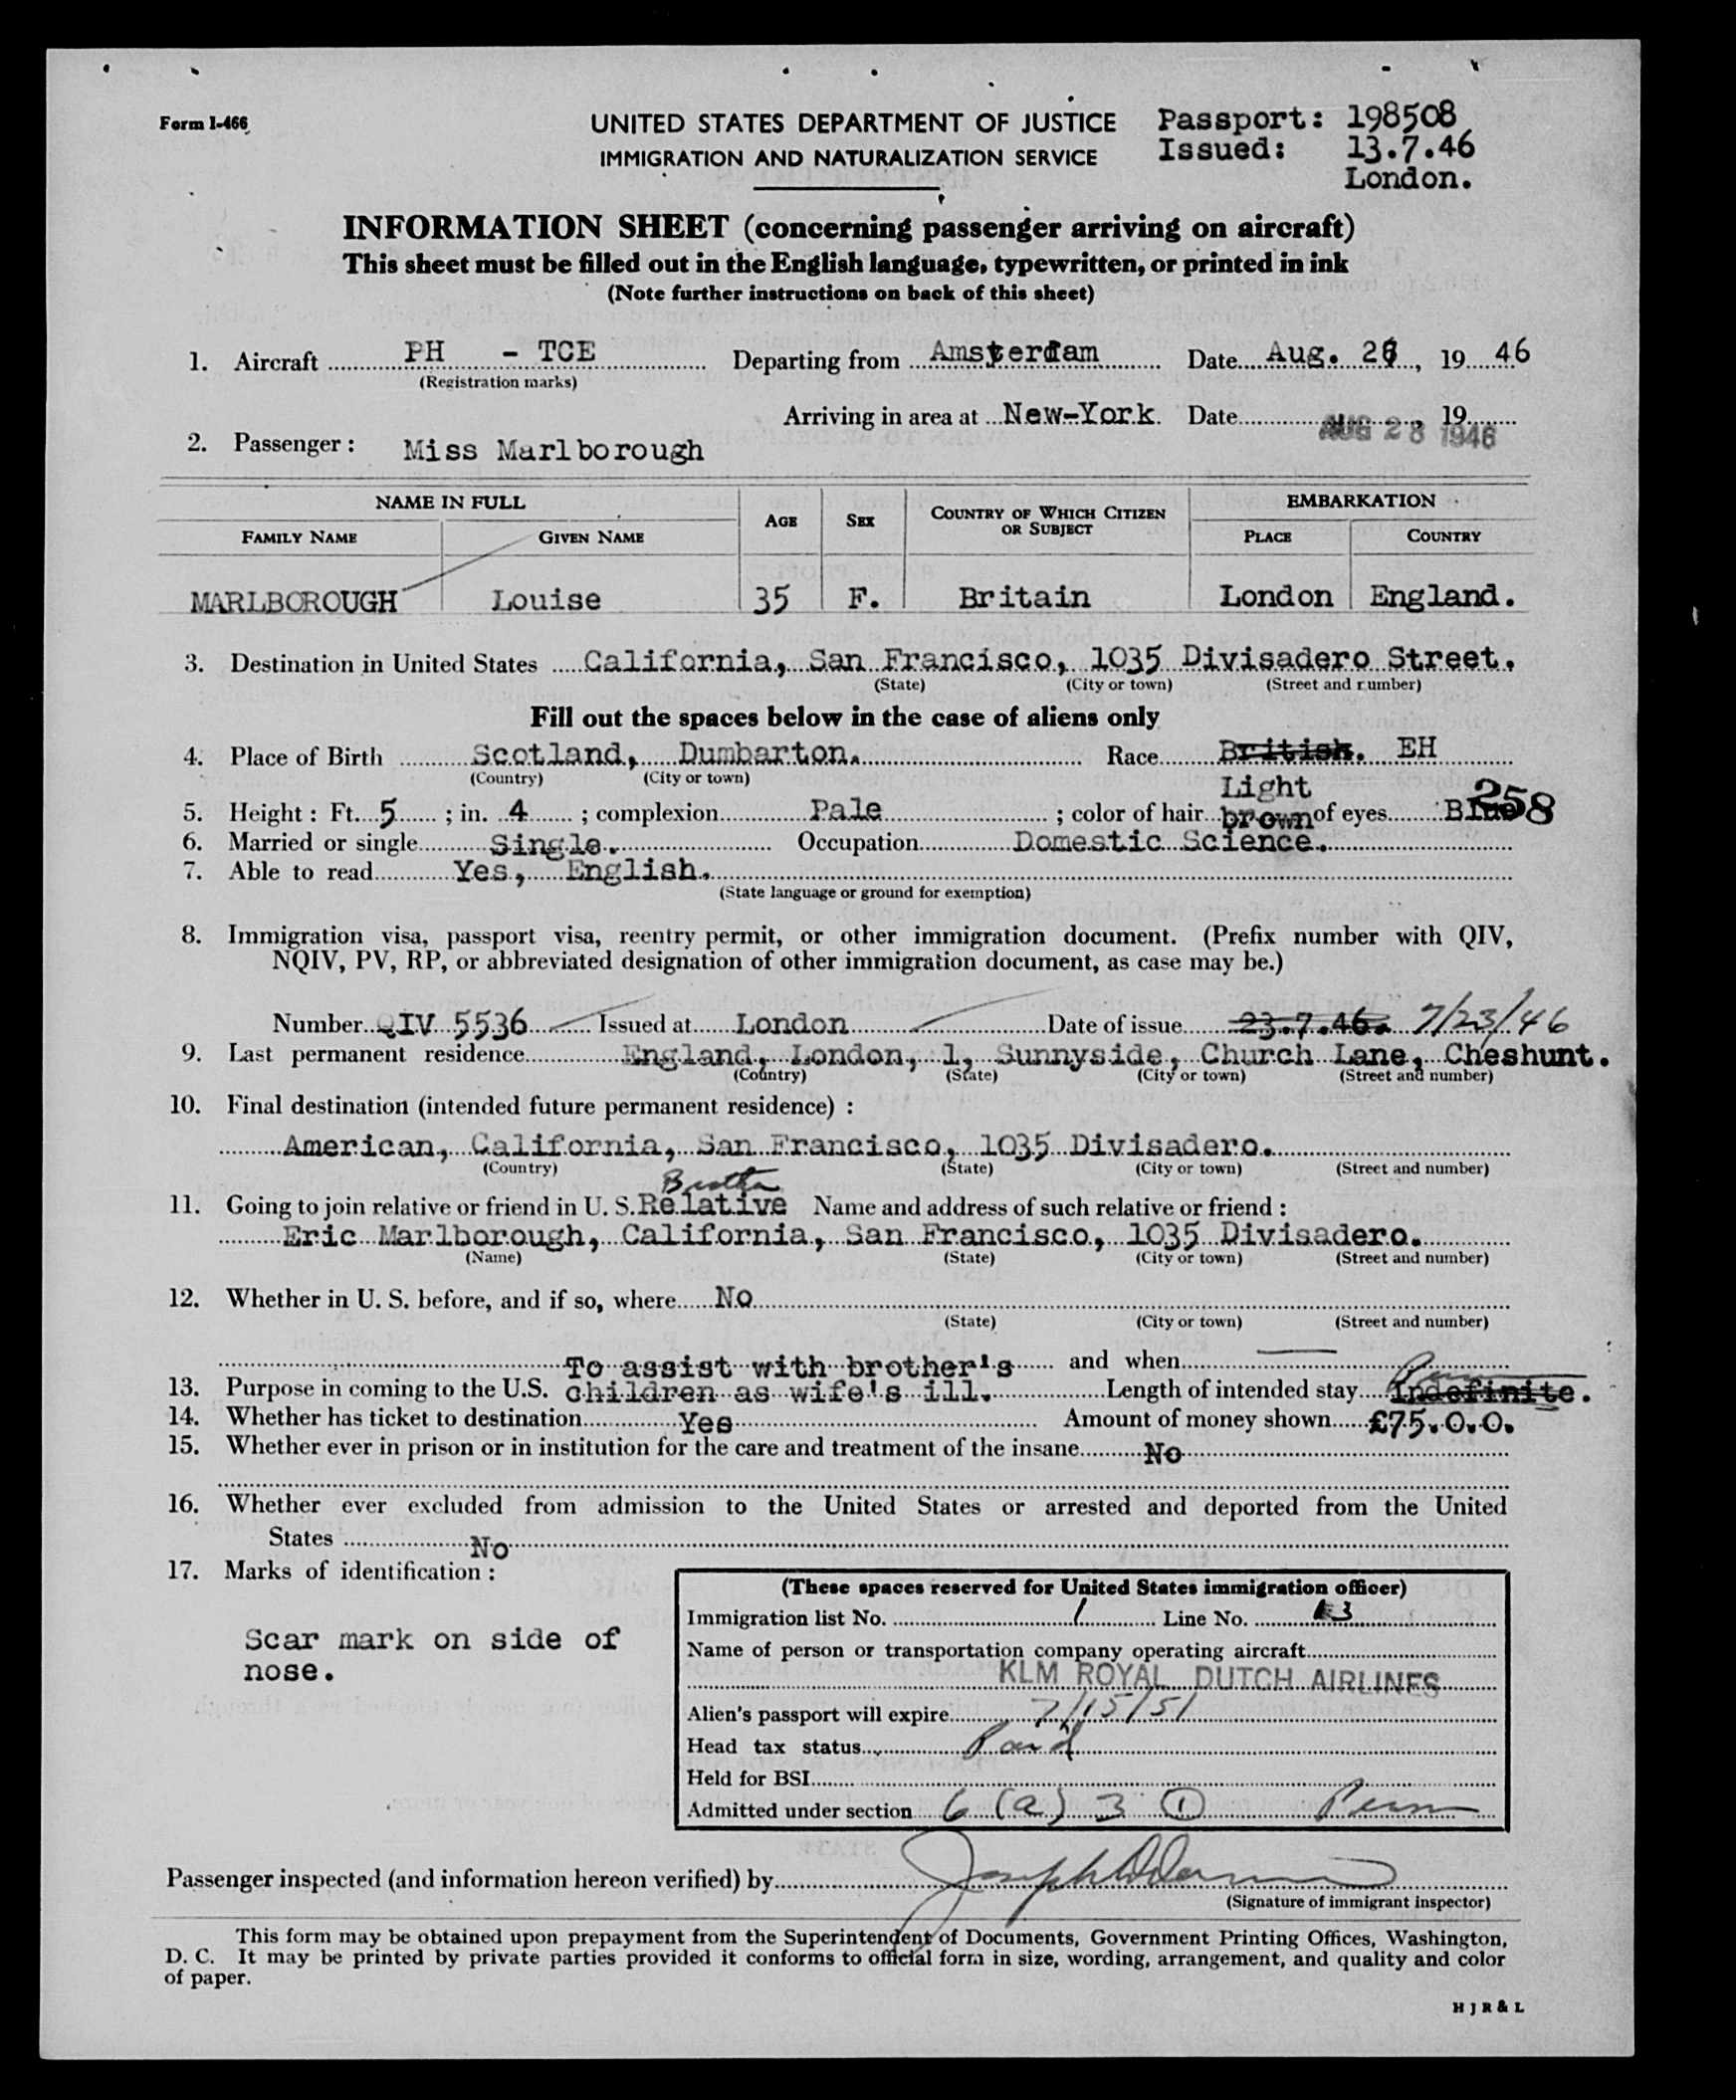 Form I-466
UNITED STATES DEPARTMENT OF JUSTICE
IMMIGRATION AND NATURALIZATION SERVICE
Passport: 198508
Issued: 13.7.46
London.
INFORMATION SHEET (concerning passenger arriving on aircraft)
This sheet must be filled out in the English language, typewritten, or printed in ink
(Note further instructions on back of this sheet)
1. Aircraft PH - TCE Departing from Amsterdam Date Aug. , 19 46
(Registration marks)
Arriving in area at New-York Date AUG 28 1946, 19
2. Passenger: Miss Marlborough
NAME IN FULL AGE SEX COUNTRY OF WHICH CITIZEN OR SUBJECT EMBARKATION
FAMILY NAME GIVEN NAME PLACE COUNTRY
MARLBOROUGH Louise 35 F. Britain London England.
3. Destination in United States California, San Francisco, 1035 Divisadero Street.
(State) (City or town) (Street and number)
Fill out the spaces below in the case of aliens only
4. Place of Birth Scotland, Dumbarton. Race British. EH
(Country) (City or town)
5. Height: Ft. 5; in. 4; complexion Pale; color of hair Light brown of eyes Blue 258
6. Married or single Single. Occupation Domestic Science.
7. Able to read Yes, English.
(State language or ground for exemption)
8. Immigration visa, passport visa, reentry permit, or other immigration document. (Prefix number with QIV,
NQIV, PV, RP, or abbreviated designation of other immigration document, as case may be.)
Number QIV 5536 Issued at London Date of issue 23.7.46. 7/23/46
9. Last permanent residence England, London, 1, Sunnyside, Church Lane, Cheshunt.
(Country) (State) (City or town) (Street and number)
10. Final destination (intended future permanent residence):
American, California, San Francisco, 1035 Divisadero.
(Country) (State) (City or town) (Street and number)
Brother
11. Going to join relative or friend in U. S. Relative Name and address of such relative or friend:
Eric Marlborough, California, San Francisco, 1035 Divisadero.
(Name) (State) (City or town) (Street and number)
12. Whether in U. S. before, and if so, where No
(State) (City or town) (Street and number)
To assist with brother's and when
13. Purpose in coming to the U.S. children as wife's ill. Length of intended stay Indefinite. Perm
14. Whether has ticket to destination Yes Amount of money shown £75.0.0.
15. Whether ever in prison or in institution for the care and treatment of the insane No
16. Whether ever excluded from admission to the United States or arrested and deported from the United
States No
17. Marks of identification:
Scar mark on side of
nose.
(These spaces reserved for United States immigration officer)
Immigration list No. 1 Line No. 3
Name of person or transportation company operating aircraft
KLM ROYAL DUTCH AIRLINES
Alien's passport will expire 7/15/51
Head tax status Paid
Held for BSI
Admitted under section 6 (a) 3 (1) Perm
Passenger inspected (and information hereon verified) by
(Signature of immigrant inspector)
This form may be obtained upon prepayment from the Superintendent of Documents, Government Printing Offices, Washington,
D. C. It may be printed by private parties provided it conforms to official form in size, wording, arrangement, and quality and color
of paper.
H J R & L